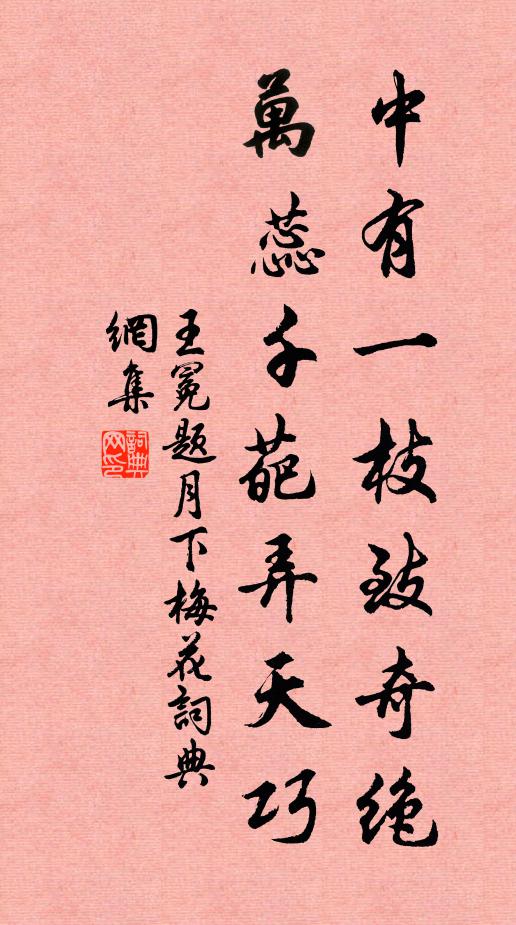 中有一枝致奇绝
萬蕊千葩弄天巧
王冕题月下梅花詞典
網集
詞典網印